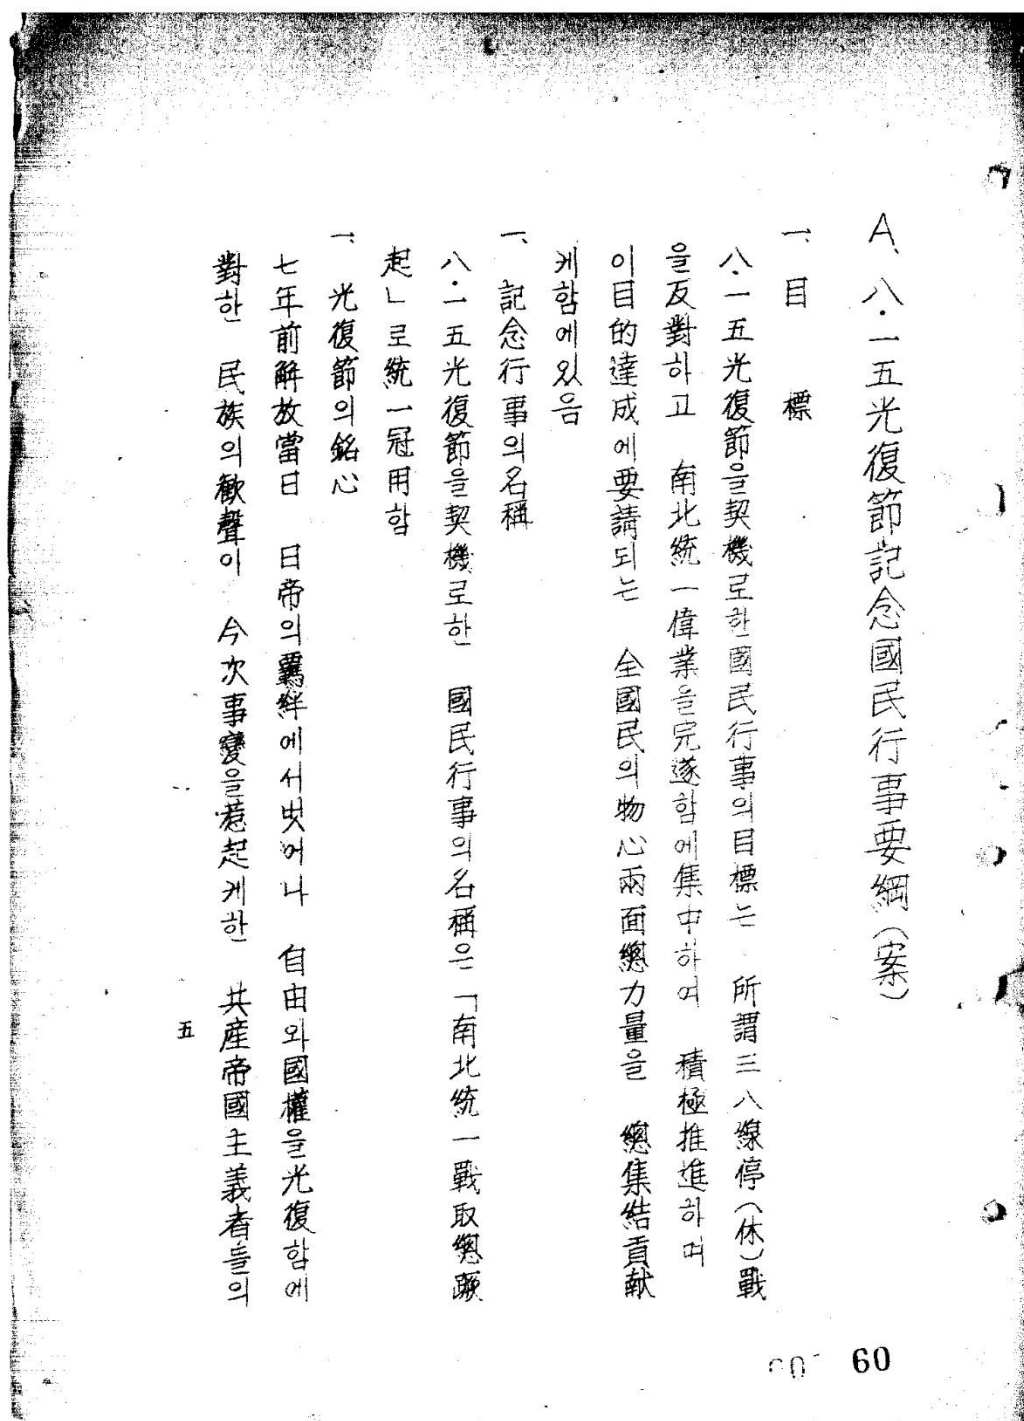 A、八·一五光復節記念國民行事要綱(案)
一、目 標
八·一五光復節을契機로한國民行事의目標는 所謂三八線停(休)戰
을反對하고 南北統一偉業을完遂함에集中하여 積極推進하며
이目的達成에要請되는 全國民의物心兩面總力量을 總集結貢献
케함에있음
一、記念行事의名稱
八·一五光復節을契機로한 國民行事의名稱은「南北統一戰取總蹶
起」로統一冠用함
一、光復節의銘心
七年前解放當日 日帝의羈絆에서벗어나 自由와國權을光復함에
對한 民族의歡聲이 今次事變을惹起케한 共産帝國主義者들의
五
60